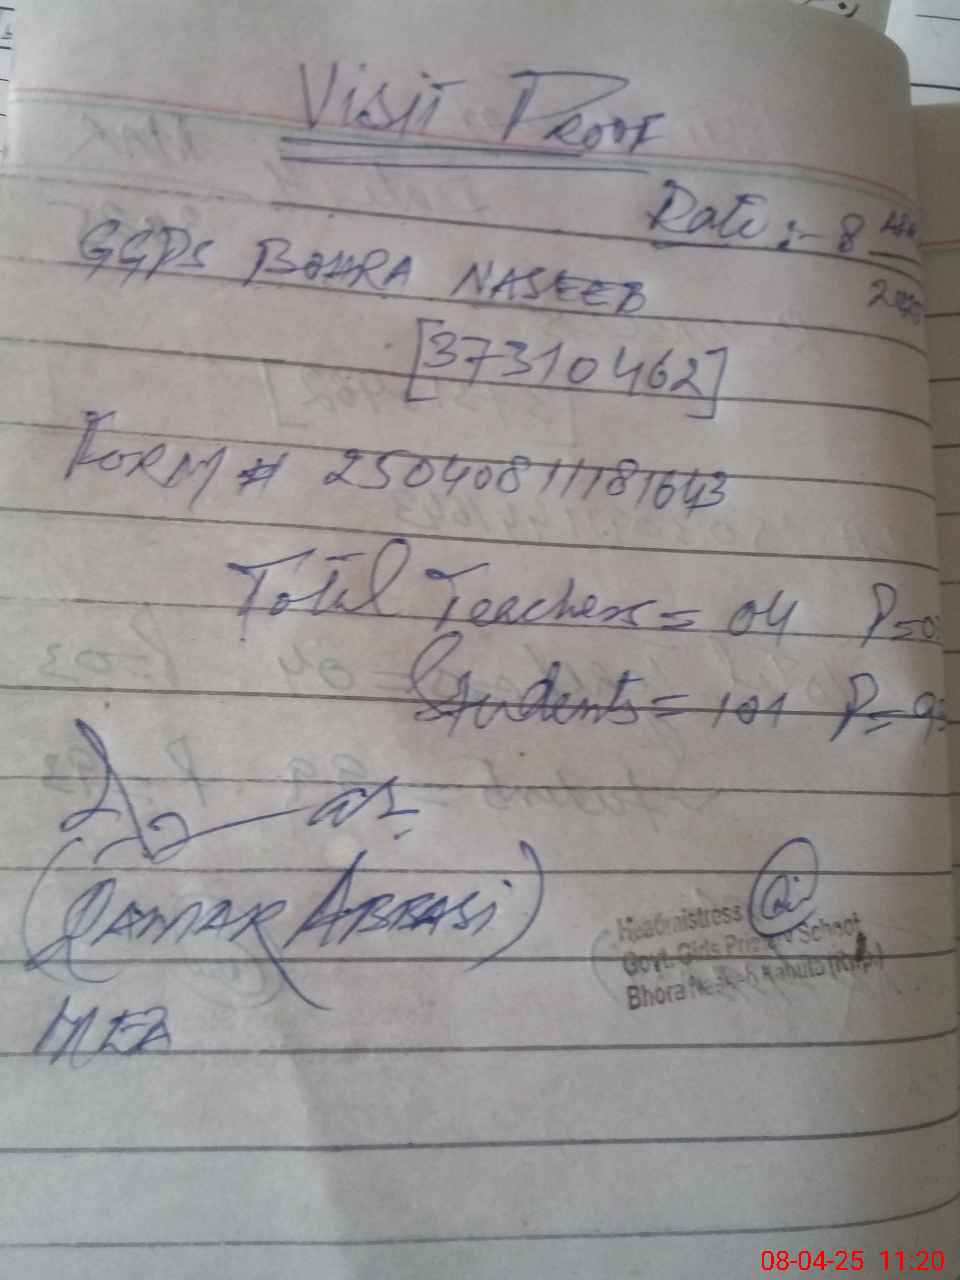 Visit Proof
Date :- 8 Apr
2025
GGPS BOHRA NASEEB
[37310462]
FORM # 25040811181643
Total Teachers = 04 P=03
Students = 101 P=93
(QAMAR ABBASI)
MEA
Headmistress
Govt. Girls Primary School
Bhora Naseeb Kahuta (Rwp.)
08-04-25 11:20